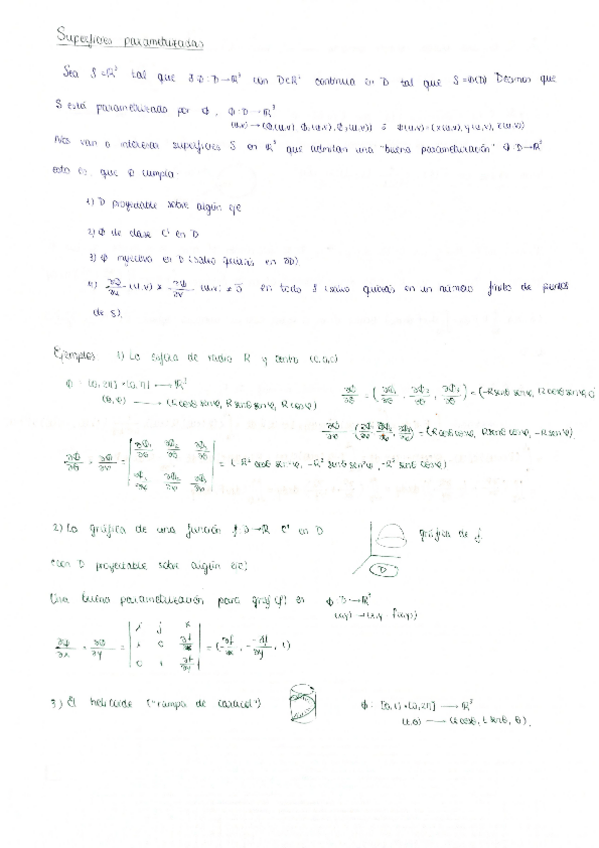 Superficies parametrizadas
Sea S⊂R³ tal que ∃ Φ: D→R³ con D⊂R² continua en D tal que S=Φ(D) Decimos que
S está parametrizada por Φ, Φ: D→R³
(u,v) → (Φ₁(u,v), Φ₂(u,v), Φ₃(u,v)) ó Φ(u,v)=(x(u,v), y(u,v), z(u,v))
Nos van a interesar superficies S en R³ que admitan una "buena parametrización" Φ: D→R³
esto es, que Φ cumpla
1) D proyectable sobre algún eje
2) Φ de clase C¹ en D
3) Φ inyectiva en D (salvo quizás en ∂D)
4) ∂Φ/∂u (u,v) × ∂Φ/∂v (u,v) ≠ 0 en todo S (salvo quizás en un número finito de puntos
de S).
Ejemplos: 1) La esfera de radio R y centro (0,0,0)
Φ: [0,2π]×[0,π] → R³
(θ,φ) → (R cosθ senφ, R senθ senφ, R cosφ)
∂Φ/∂θ = (∂Φ₁/∂θ, ∂Φ₂/∂θ, ∂Φ₃/∂θ) = (-R senθ senφ, R cosθ senφ, 0
∂Φ/∂φ = (∂Φ₁/∂φ, ∂Φ₂/∂φ, ∂Φ₃/∂φ) = (R cosθ cosφ, R senθ cosφ, -R senφ)
2) La gráfica de una función f: D→R C¹ en D
gráfica de f
(con D proyectable sobre algún eje)
D
Una buena parametrización para graf(f) es Φ: D→R³
(x,y) → (x, y, f(x,y))
∂Φ/∂x × ∂Φ/∂y = | i j k | 1 0 ∂f/∂x | 0 1 ∂f/∂y | = (-∂f/∂x, -∂f/∂y, 1)
3) El helicoide ("rampa de caracol")
Φ: [0,1]×[0,2π] → R³